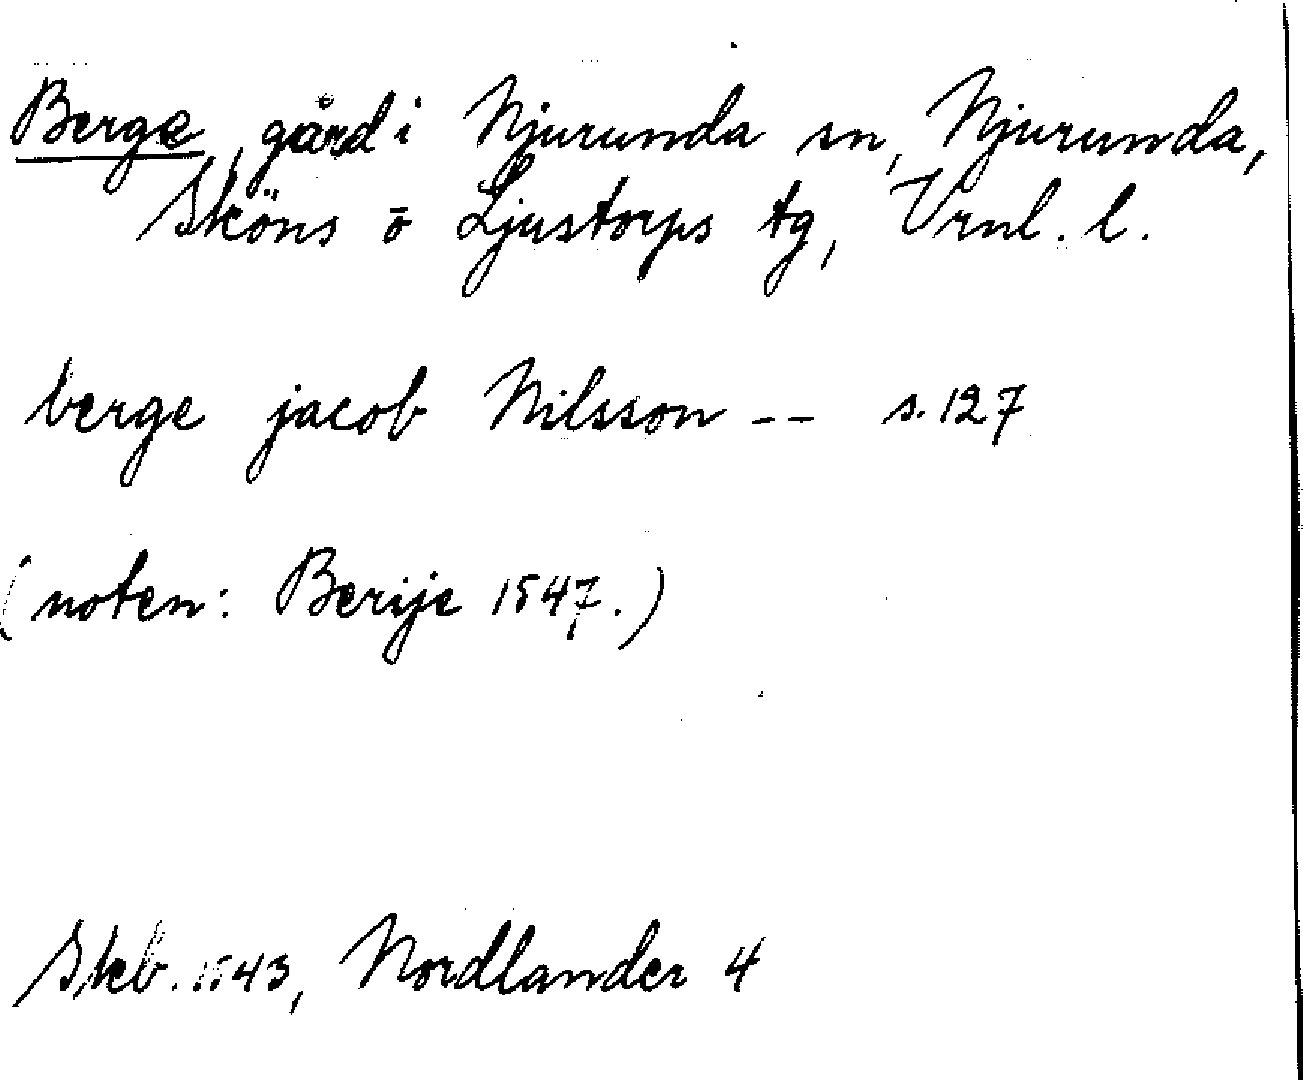 Berge, gård i Njurunda sn, Njurunda,
Sköns o Ljustorps tg, Vrnl. l.
berge jacob Nilsson -- s. 127
(noten: Berije 1547.)
Skb. 1543, Nordlander 4